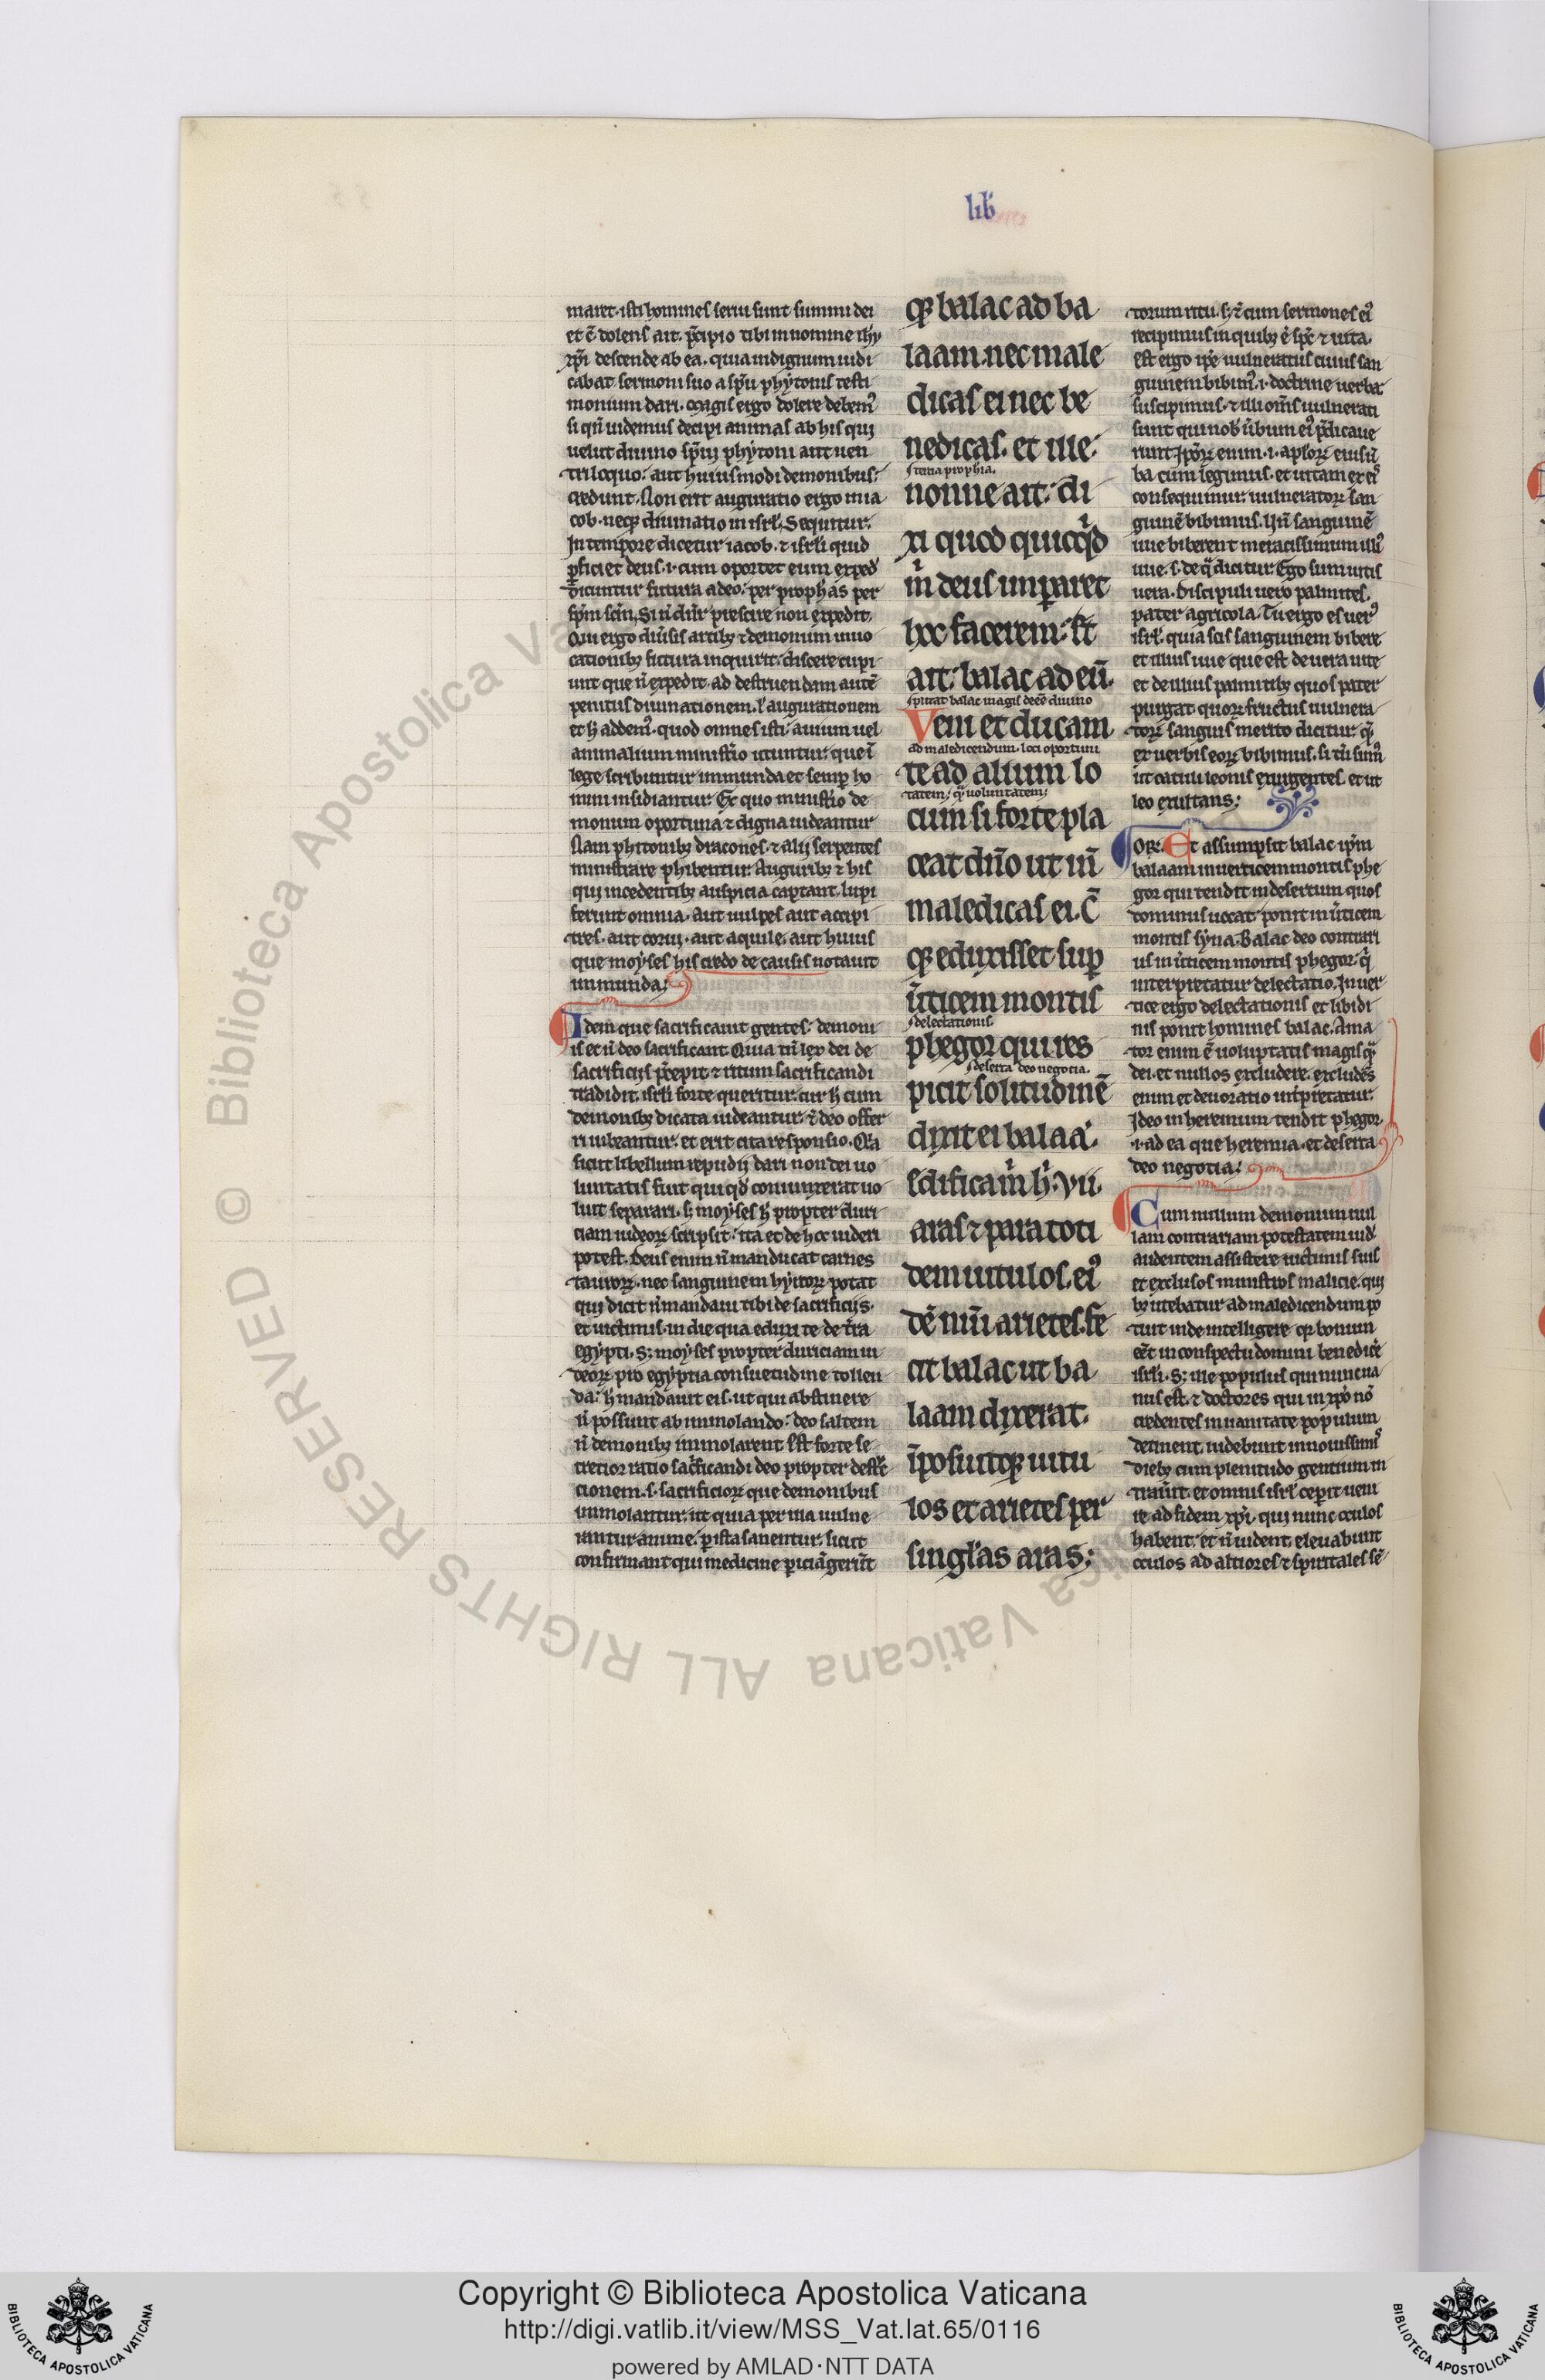 lib̃
maret. isti homines serui sunt summi dei
et c̃. dolens ait. p̃cipio tibi in nomine ihu
xp̃i descende ab ea. quia indignum iudi
cabat sermoni suo a sp̃u phytonis testi
monium dari. Magis ergo dolere debem᷒
si qñ uidemus decipi animas ab his qui
uelut diuino sp̃ui phytoni aut uen
triloquo: aut huiusmodi demonibus:
credunt. Non erit auguratio ergo in ia
cob. neq; diuinatio in isrl̃. Sequitur.
In tempore dicetur iacob. ⁊ isrl̃i quid
ꝑficiet deus. i. cum oportet eum exped̃
dicuntur futura a deo. per prophas per
sp̃m scm̃. Si ñ dñr prescire non expedit.
Qui ergo diuẽsis artib; ⁊ demonum inuo
cationib; futura inquirit: discere cupi
unt que ñ expedit. ad destruendam autẽ
penitus diuinationem. ł augurationem
et h̃ addem᷒. quod omnes isti auium uel
animalium minist̃io utuntur: que ĩ
lege scribuntur immunda et semꝑ ho
minũ insidiantur. Ex quo minist̃io de
monum oportuna ⁊ digna uideantur
Nam phitonib; dracones. ⁊ alii serpentes
ministrare phibentur. Augurib; ⁊ his
qui incedentib; auspicia captant. lupi
ferunt omnia. aut uulpes aut accipi
tres. aut corui. aut aquile. aut huius
que moyses his credo de causis notauit
immunda;
Idem que sacrificauit gentes: demoni
is et ñ deo sacrificant. Quia tñ lex dei de
sacrificijs p̃cepit ⁊ ritum sacrificandi
tradidit. isrl̃i forte queritur. cur h̃ cum
demonib; dicata uideantur: ⁊ deo offer
ri iubeantur. et erit cita responsio. Q̃a
sicut libellum repudij dari non dei uo
luntatis fuit qui qd̃ coniunxerat no
luit separari. s; moyses h̃ propter duri
ciam iudeoꝝ scripsit: ita et de hoc uideri
potest. Deus enim ñ manducat carnes
tauroꝝ. nec sanguinem hyrcoꝝ potat
qui dicit ñ mandaui tibi de sacrificijs.
et uictimis. in die qua eduxi te de t̃ra
egypti. S; moyses propter duriciam iu
deoꝝ pro egyptia consuetudine tollen
da: h̃ mandauit eis. ut qui abstinere
ñ possunt ab immolando: deo saltem
ñ demonib; immolarent. Est forte se
cretior ratio sac̃ficandi deo propter dest̃c
cionem. s. sacrificioꝝ que demonibus
immolantur. ut quia per illa uulne
rantur anime. ꝑ ista sanentur. sicut
confirmant qui medicine periciã gerũt
q; balac ad ba
laam. nec male
dicas ei nec be
nedicas. et ille.
s tercia prophia.
nonne ait: di
xi quod quicq̃d
m̃ deus imꝑaret
hoc facerem: s̃t
ait: balac ad eũ.
s putat balac magis deẽe diuino
Veni et ducam
ad maledicendum. loci oportuni
te ad alium lo
tatem. q̃ uoluntatem;
cum si forte pla
ceat dño ut iñ
maledicas ei. C̃
q; eduxisset suꝑ
ũticem montis
s delectationis.
phegor qui res
s deserta deo negocia.
picit solitudinẽ
dixit ei balaã.
edifica m̃ h̃. vii.
aras ⁊ para toti
dem uitulos. ei᷒
dẽ nũi arietes. fe
cit balac ut ba
laam dixerat.
ĩposuitq; uitu
los et arietes per
singl̃as aras;
torum ritu. s; ⁊ cum sermones ei᷒
recipimus in quib; ẽ sp̃c ⁊ uita.
est ergo ip̃e uulneratus cuius san
guinem bibim᷒. i. doctrine uerba
suscipimus. ⁊ illi om̃s uulnerati
sunt qui nob̃ ũbum ei᷒ p̃dicaue
runt. Ip̃oꝝ enim. i. apl̃oꝝ eius ũ
ba cum legimus. et uitam ex ei᷒
consequimur. uulneratoꝝ san
guinẽ bibimus. Hũ sanguinẽ
uue biberent meracissimum illi᷒
uue. s. de q̃ dicitur. Ego sum uitis
uera. Discipuli uero palmites.
pater agricola. Tu ergo es uer᷒
isrl̃. quia scis sanguinem bibere
et illius uue que est de uera uite
et de illius palmitib; quos pater
purgat. quoꝝ fructus uulnera
toꝝ sanguis merito dicitur. q̃
ex uerbis eoꝝ bibimus. si tñ sim᷒
ut catuli leonis exurgentes. et ut
leo exultans;
OR̃. Et assumpsit balac ip̃m
balaam in uerticem montis phe
gor qui tendit in desertum quos
dominus uocat ponit in ũticem
montis syna. Balac deo contrari
us in ũticem montis phegor. q̃
interpretatur delectatio. In uer
tice ergo delectationis et libidi
nis ponit homines balac. Ama
tor enim ẽ uoluptatis magis q̃
dei. et nullos excludere. excludẽs
enim et deuoratio int̃pretatur.
Ideo in heremum tendit phegor.
i. ad ea que herema. et deserta
deo negotia;
Cum nullum demonum nul
lam contrariam potestatem uid̃
audentem assistere uictimis suis
et exclusos ministros malicie. qui
b; utebatur ad maledicendum po
tuit inde intelligere q; bonum
eẽt in conspectu domini benedicẽ
isrl̃i. S; ille populus qui nunc ua
nus est. ⁊ doctores qui in xp̃o nõ
credentes in uanitate populum
detinent. uidebunt in nouissim᷒
dieb; cum plenitudo gentium in
trauit. et omnis isrl̃ ceperit ueni
re ad fidem xp̃i. qui nunc oculos
habent. et ñ uident. eleuabunt
oculos ad altiores ⁊ spiritales sẽ
Copyright © Biblioteca Apostolica Vaticana
http://digi.vatlib.it/view/MSS_Vat.lat.65/0116
powered by AMLAD·NTT DATA
BIBLIOTECA APOSTOLICA VATICANA
BIBLIOTECA APOSTOLICA VATICANA
© Biblioteca Apostolica Vaticana ALL RIGHTS RESERVED